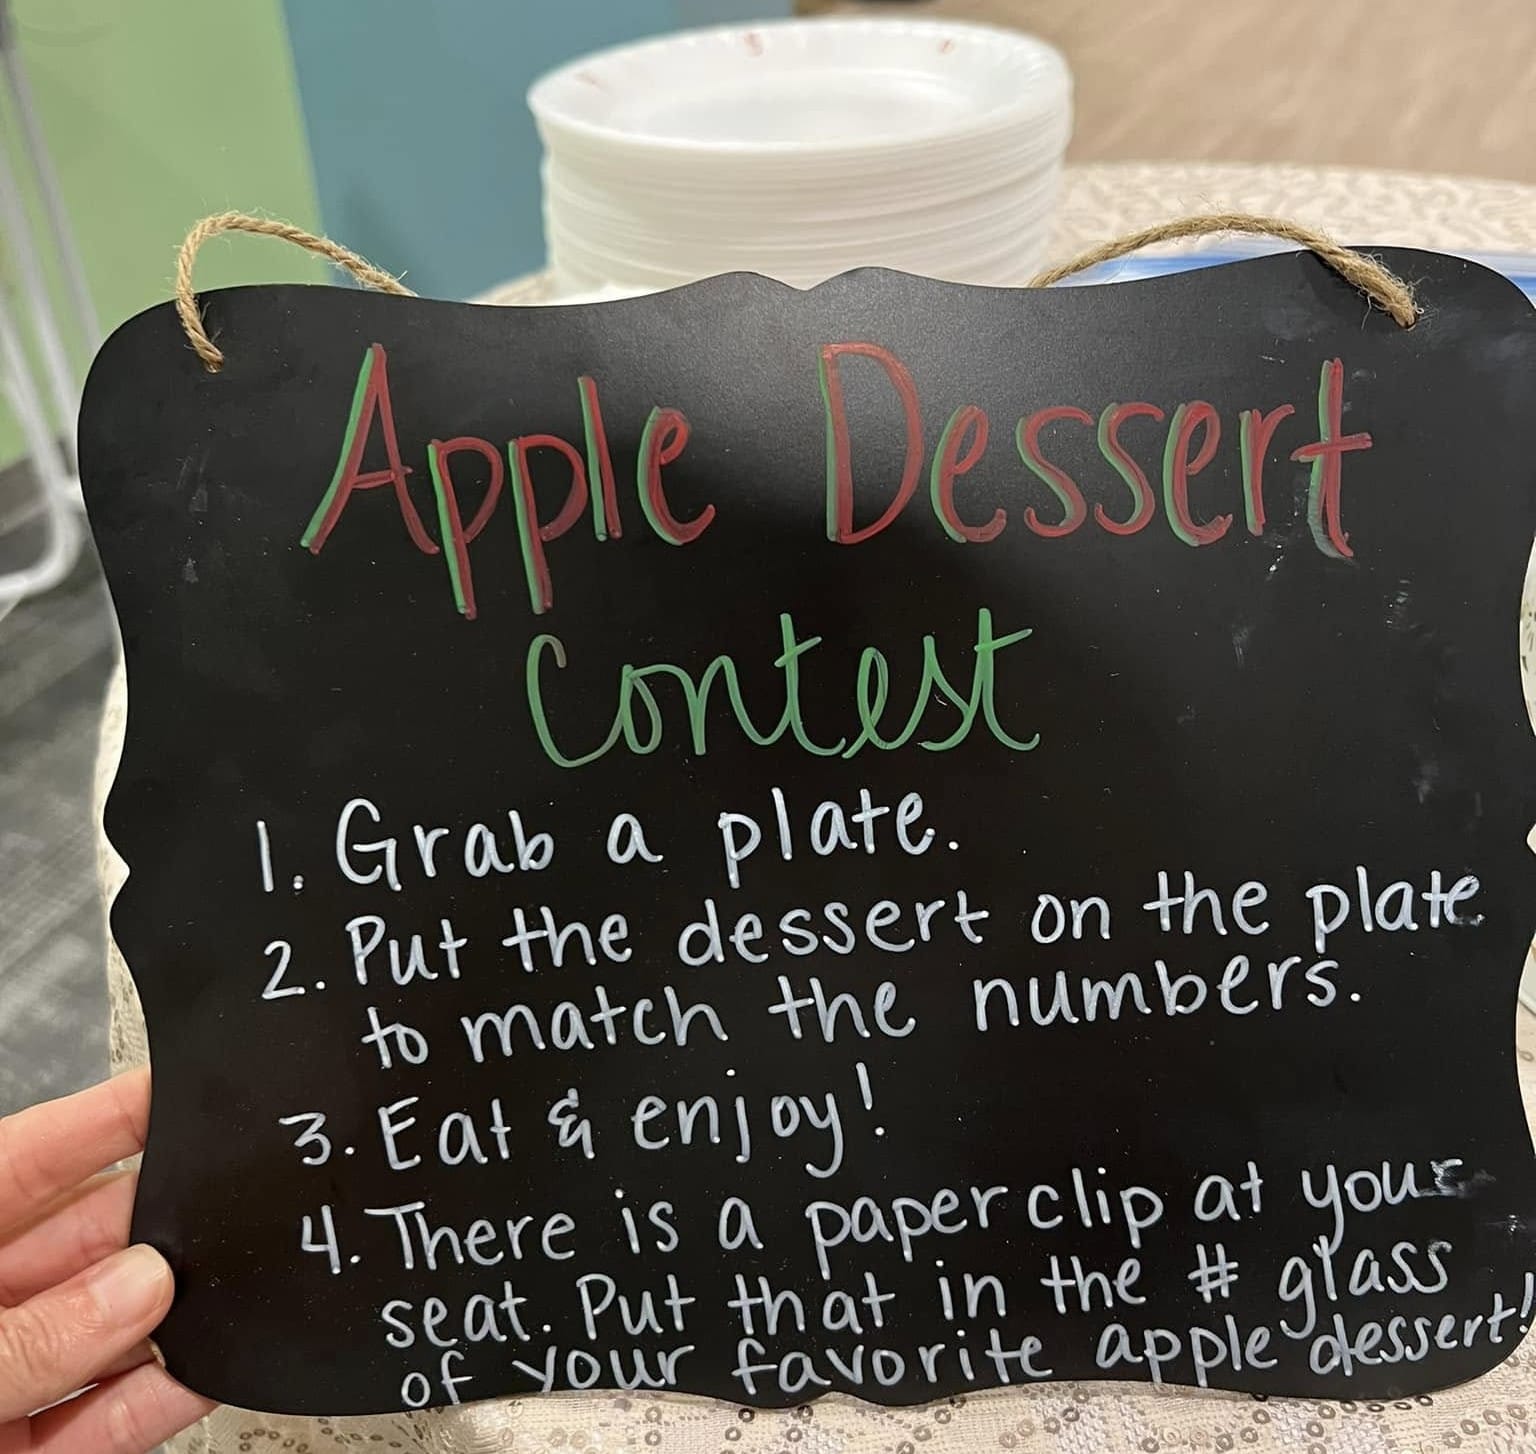 Apple Dessert
Contest
1. Grab a plate.
2. Put the dessert on the plate
to match the numbers.
3. Eat & enjoy!
4. There is a paperclip at your
seat. Put that in the # glass
of your favorite apple dessert!